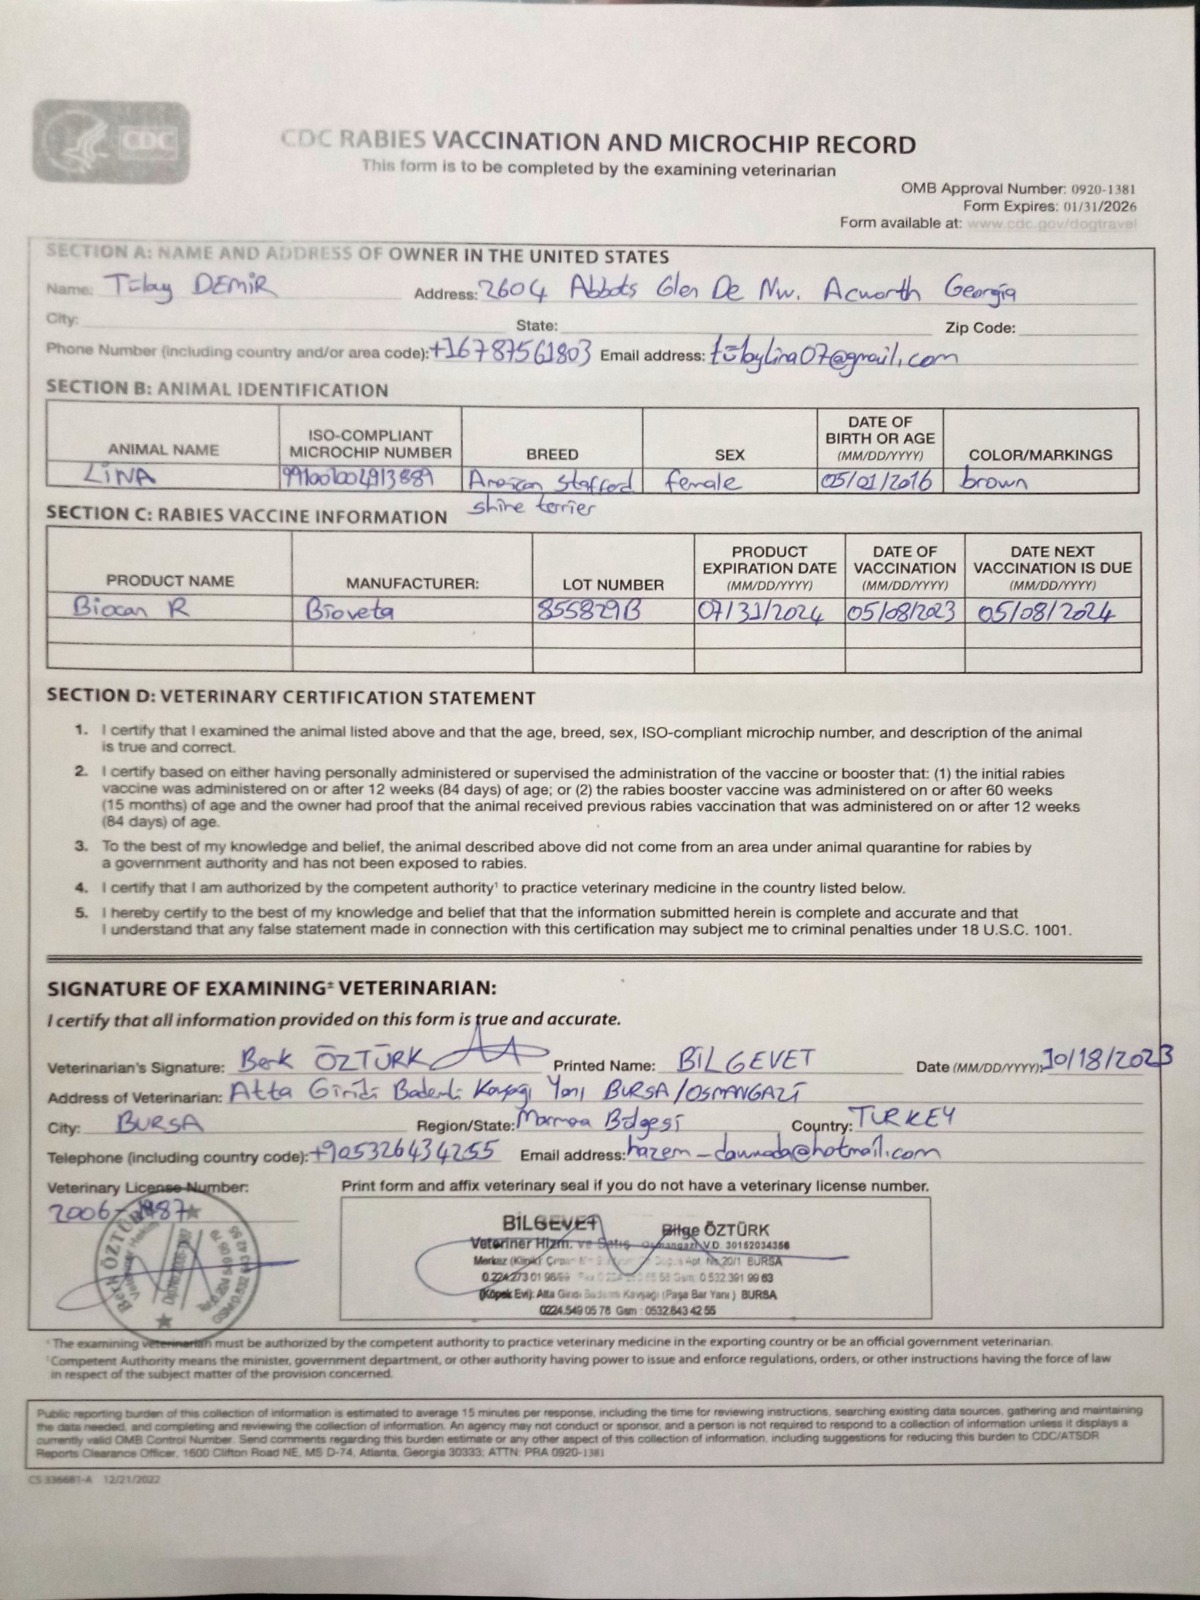 CDC
CDC RABIES VACCINATION AND MICROCHIP RECORD
This form is to be completed by the examining veterinarian
OMB Approval Number: 0920-1381
Form Expires: 01/31/2026
Form available at: www.cdc.gov/dogtravel
SECTION A: NAME AND ADDRESS OF OWNER IN THE UNITED STATES
Name: Tülay DEMİR Address: 2604 Abbots Glen De Nw. Acworth Georgia
City: State: Zip Code:
Phone Number (including country and/or area code): +16787561803 Email address: tülaylina07@gmail.com
SECTION B: ANIMAL IDENTIFICATION
ANIMAL NAME ISO-COMPLIANT MICROCHIP NUMBER BREED SEX DATE OF BIRTH OR AGE (MM/DD/YYYY) COLOR/MARKINGS
LİNA 991001004913889 American Stafford female 05/01/2016 brown
shire terrier
SECTION C: RABIES VACCINE INFORMATION
PRODUCT NAME MANUFACTURER: LOT NUMBER PRODUCT EXPIRATION DATE (MM/DD/YYYY) DATE OF VACCINATION (MM/DD/YYYY) DATE NEXT VACCINATION IS DUE (MM/DD/YYYY)
Biocan R Bioveta 855829B 07/31/2024 05/08/2023 05/08/2024
SECTION D: VETERINARY CERTIFICATION STATEMENT
1. I certify that I examined the animal listed above and that the age, breed, sex, ISO-compliant microchip number, and description of the animal
is true and correct.
2. I certify based on either having personally administered or supervised the administration of the vaccine or booster that: (1) the initial rabies
vaccine was administered on or after 12 weeks (84 days) of age; or (2) the rabies booster vaccine was administered on or after 60 weeks
(15 months) of age and the owner had proof that the animal received previous rabies vaccination that was administered on or after 12 weeks
(84 days) of age.
3. To the best of my knowledge and belief, the animal described above did not come from an area under animal quarantine for rabies by
a government authority and has not been exposed to rabies.
4. I certify that I am authorized by the competent authority¹ to practice veterinary medicine in the country listed below.
5. I hereby certify to the best of my knowledge and belief that that the information submitted herein is complete and accurate and that
I understand that any false statement made in connection with this certification may subject me to criminal penalties under 18 U.S.C. 1001.
SIGNATURE OF EXAMINING± VETERINARIAN:
I certify that all information provided on this form is true and accurate.
Veterinarian's Signature: Berk ÖZTÜRK Printed Name: BİLGEVET Date (MM/DD/YYYY): 10/18/2023
Address of Veterinarian: Atta Girişi Bademli Kavşağı Yanı BURSA/OSMANGAZİ
City: BURSA Region/State: Marmara Bölgesi Country: TURKEY
Telephone (including country code): +905326434255 Email address: hazem_dawwada@hotmail.com
Veterinary License Number: Print form and affix veterinary seal if you do not have a veterinary license number.
2006-1987
Berk ÖZTÜRK
Veteriner Hekim
BİLGEVET Bilge ÖZTÜRK
Veteriner Hizm. ve Satış Osmangazi V.D. 30152034356
Merkez (Klinik) Apt. No:20/1 BURSA
0.224.273 01 98/99 Gsm: 0.532.391 99 63
(Köpek Evi): Atta Girişi Bademli Kavşağı (Paşa Bar Yanı) BURSA
0224.549 05 78 Gsm : 0532.643 42 55
± The examining veterinarian must be authorized by the competent authority to practice veterinary medicine in the exporting country or be an official government veterinarian.
¹ Competent Authority means the minister, government department, or other authority having power to issue and enforce regulations, orders, or other instructions having the force of law
in respect of the subject matter of the provision concerned.
Public reporting burden of this collection of information is estimated to average 15 minutes per response, including the time for reviewing instructions, searching existing data sources, gathering and maintaining
the data needed, and completing and reviewing the collection of information. An agency may not conduct or sponsor, and a person is not required to respond to a collection of information unless it displays a
currently valid OMB Control Number. Send comments regarding this burden estimate or any other aspect of this collection of information, including suggestions for reducing this burden to CDC/ATSDR
Reports Clearance Officer, 1600 Clifton Road NE, MS D-74, Atlanta, Georgia 30333; ATTN: PRA 0920-1381
CS 336681-A 12/21/2022